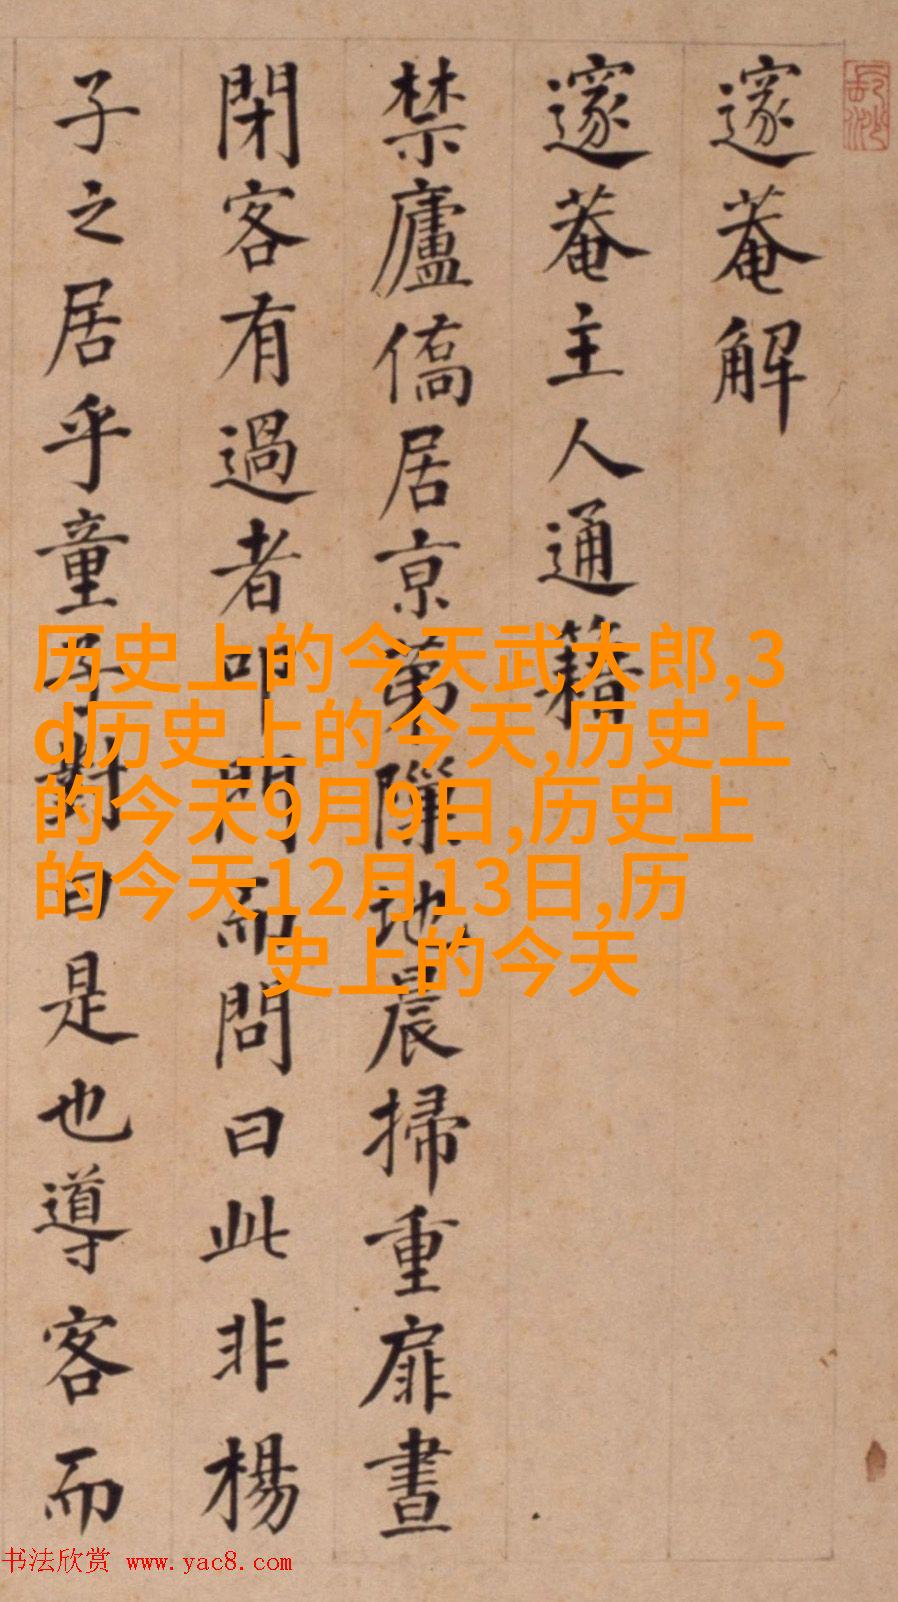 邃菴解
邃菴主人通籍
禁廬僑居京第隟地晨掃重扉晝
閉客有過者叩門而問曰此非楊
子之居乎童子對曰是也導客而
历史上的今天武大郎,3
d历史上的今天,历史上
的今天9月9日,历史上
的今天12月13日,历
史上的今天
书法欣赏 www.yac8.com